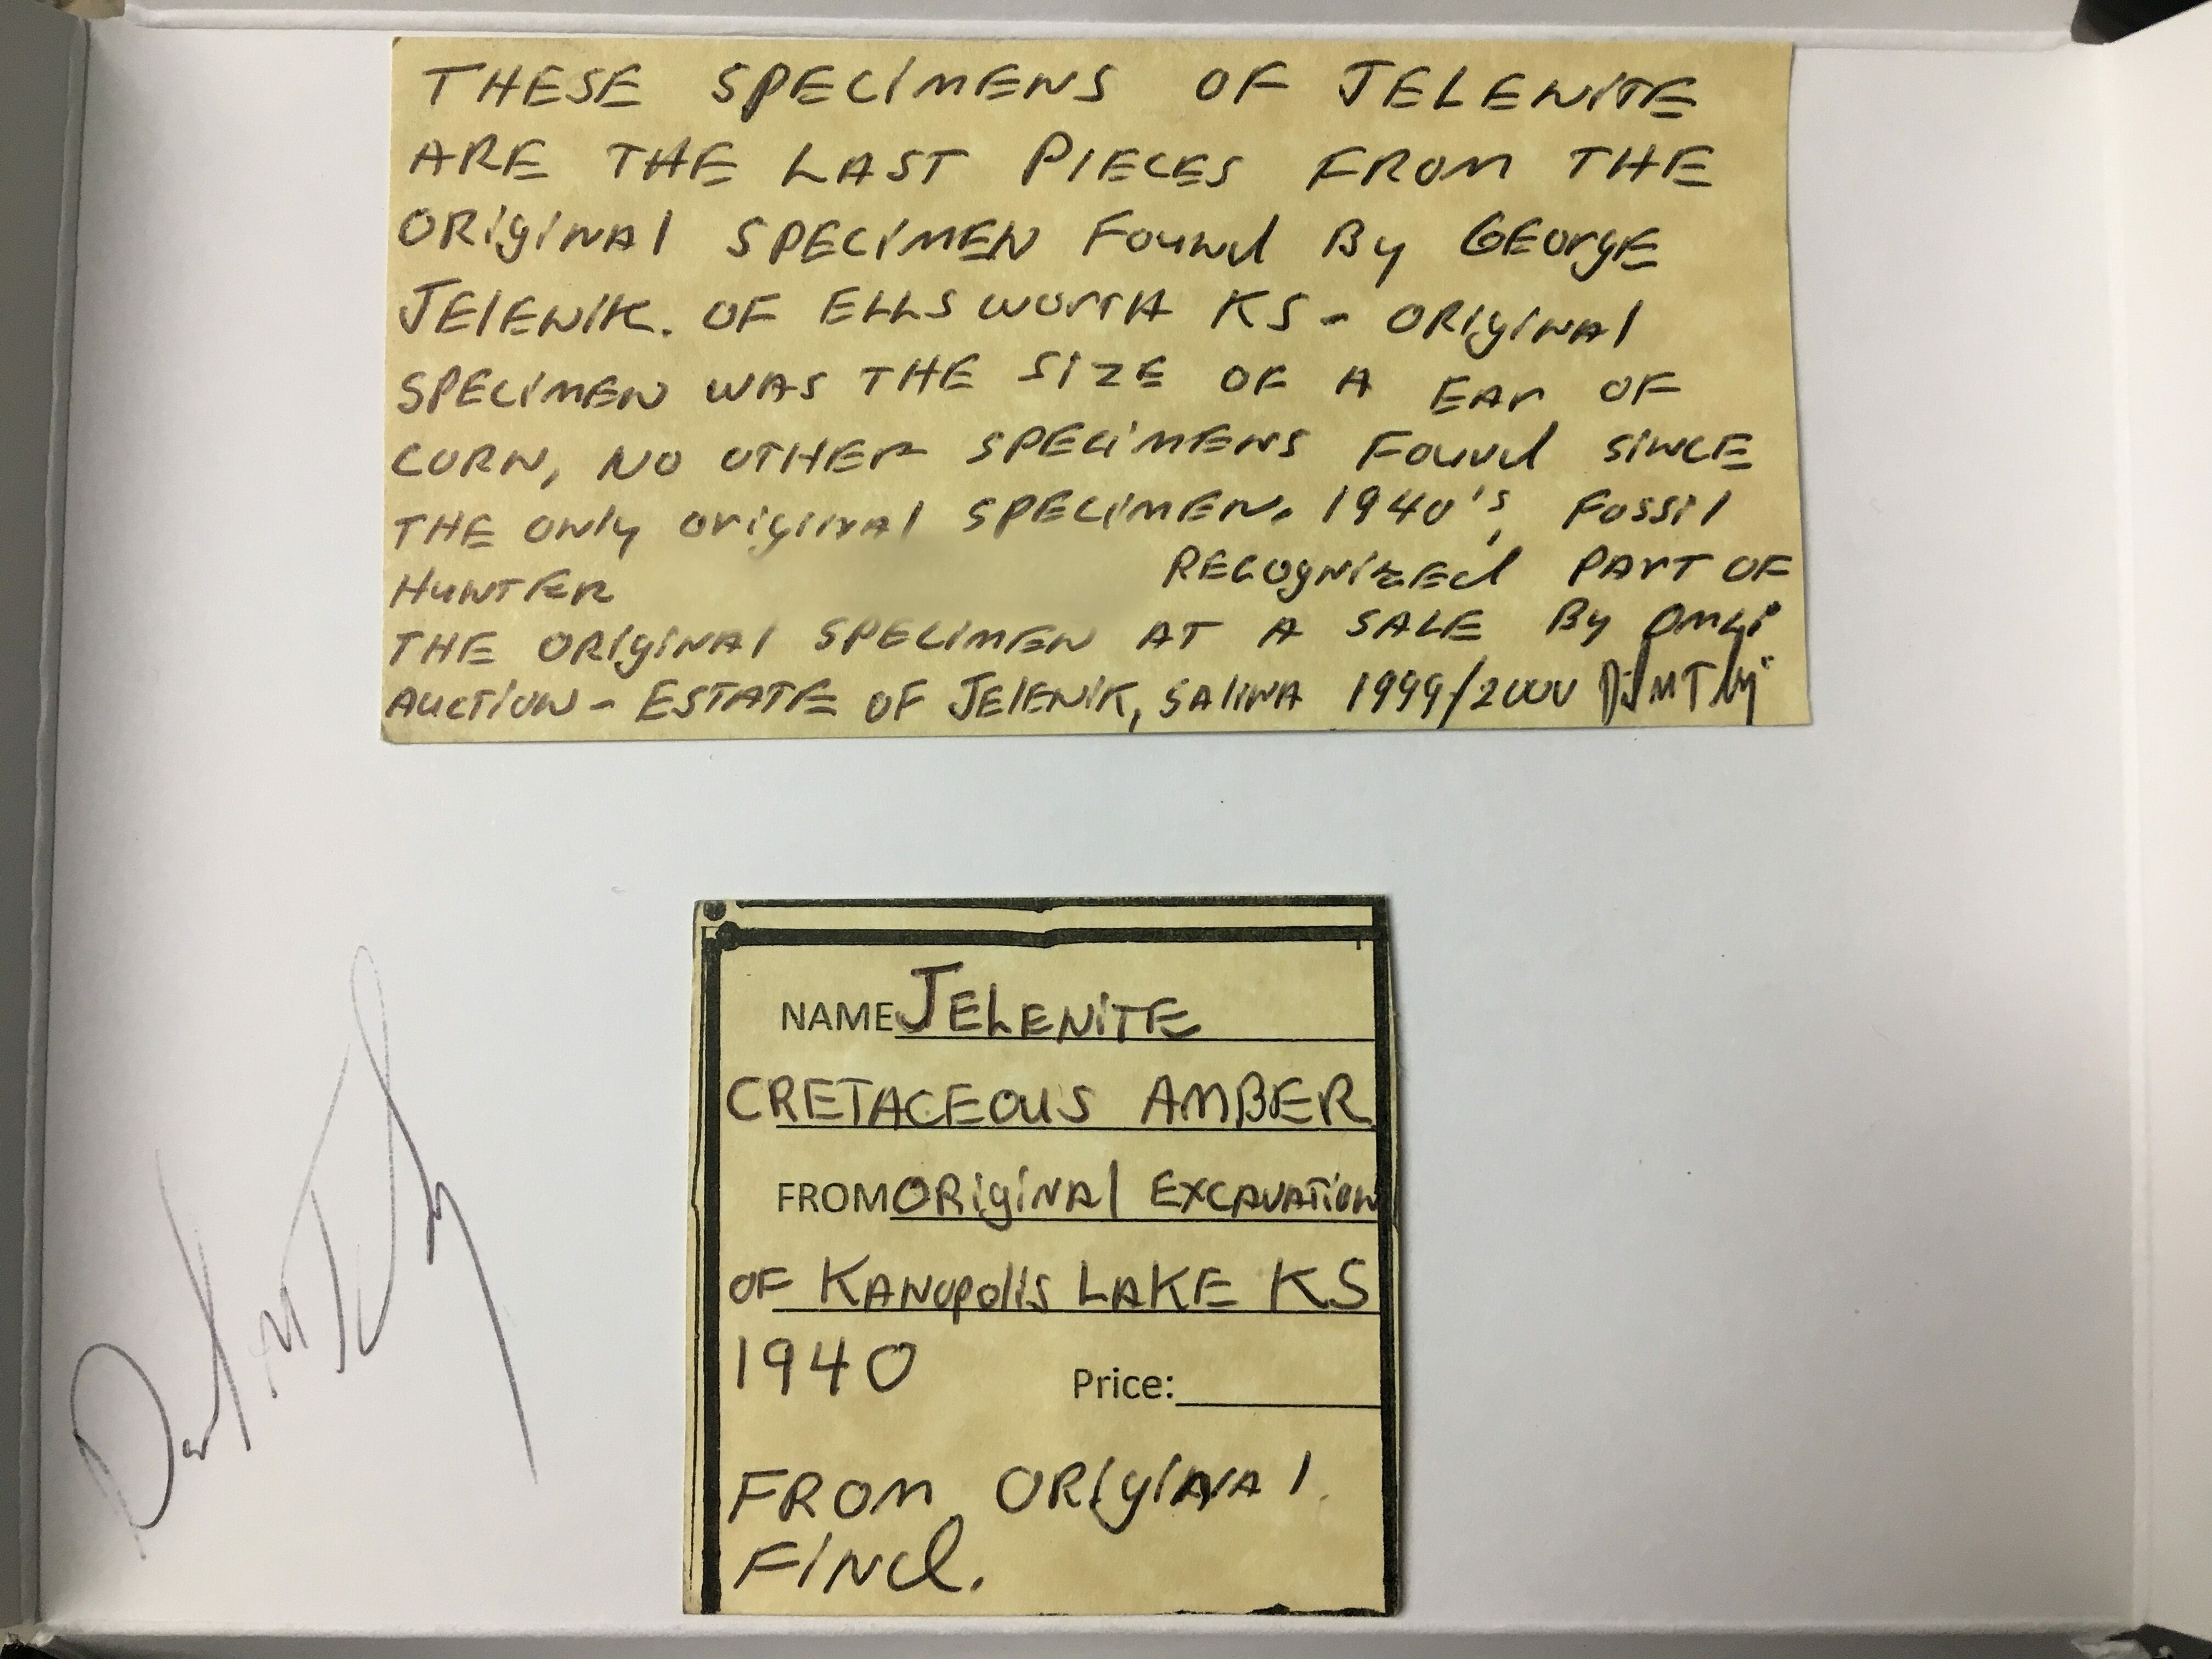 THESE SPECIMENS OF JELENITE
ARE THE LAST PIECES FROM THE
ORIGINAL SPECIMEN FOUND BY GEORGE
JELENIK. OF ELLSWORTH KS - ORIGINAL
SPECIMEN WAS THE SIZE OF A EAR OF
CORN, NO OTHER SPECIMENS FOUND SINCE
THE ONLY ORIGINAL SPECIMEN. 1940'S, FOSSIL
HUNTER RECOGNIZED PART OF
THE ORIGINAL SPECIMEN AT A SALE BY
AUCTION - ESTATE OF JELENIK, SALINA 1999/2000
NAME JELENITE
CRETACEOUS AMBER
FROM ORIGINAL EXCAVATION
OF KANOPOLIS LAKE KS
1940 Price:
FROM ORIGINAL
FIND.